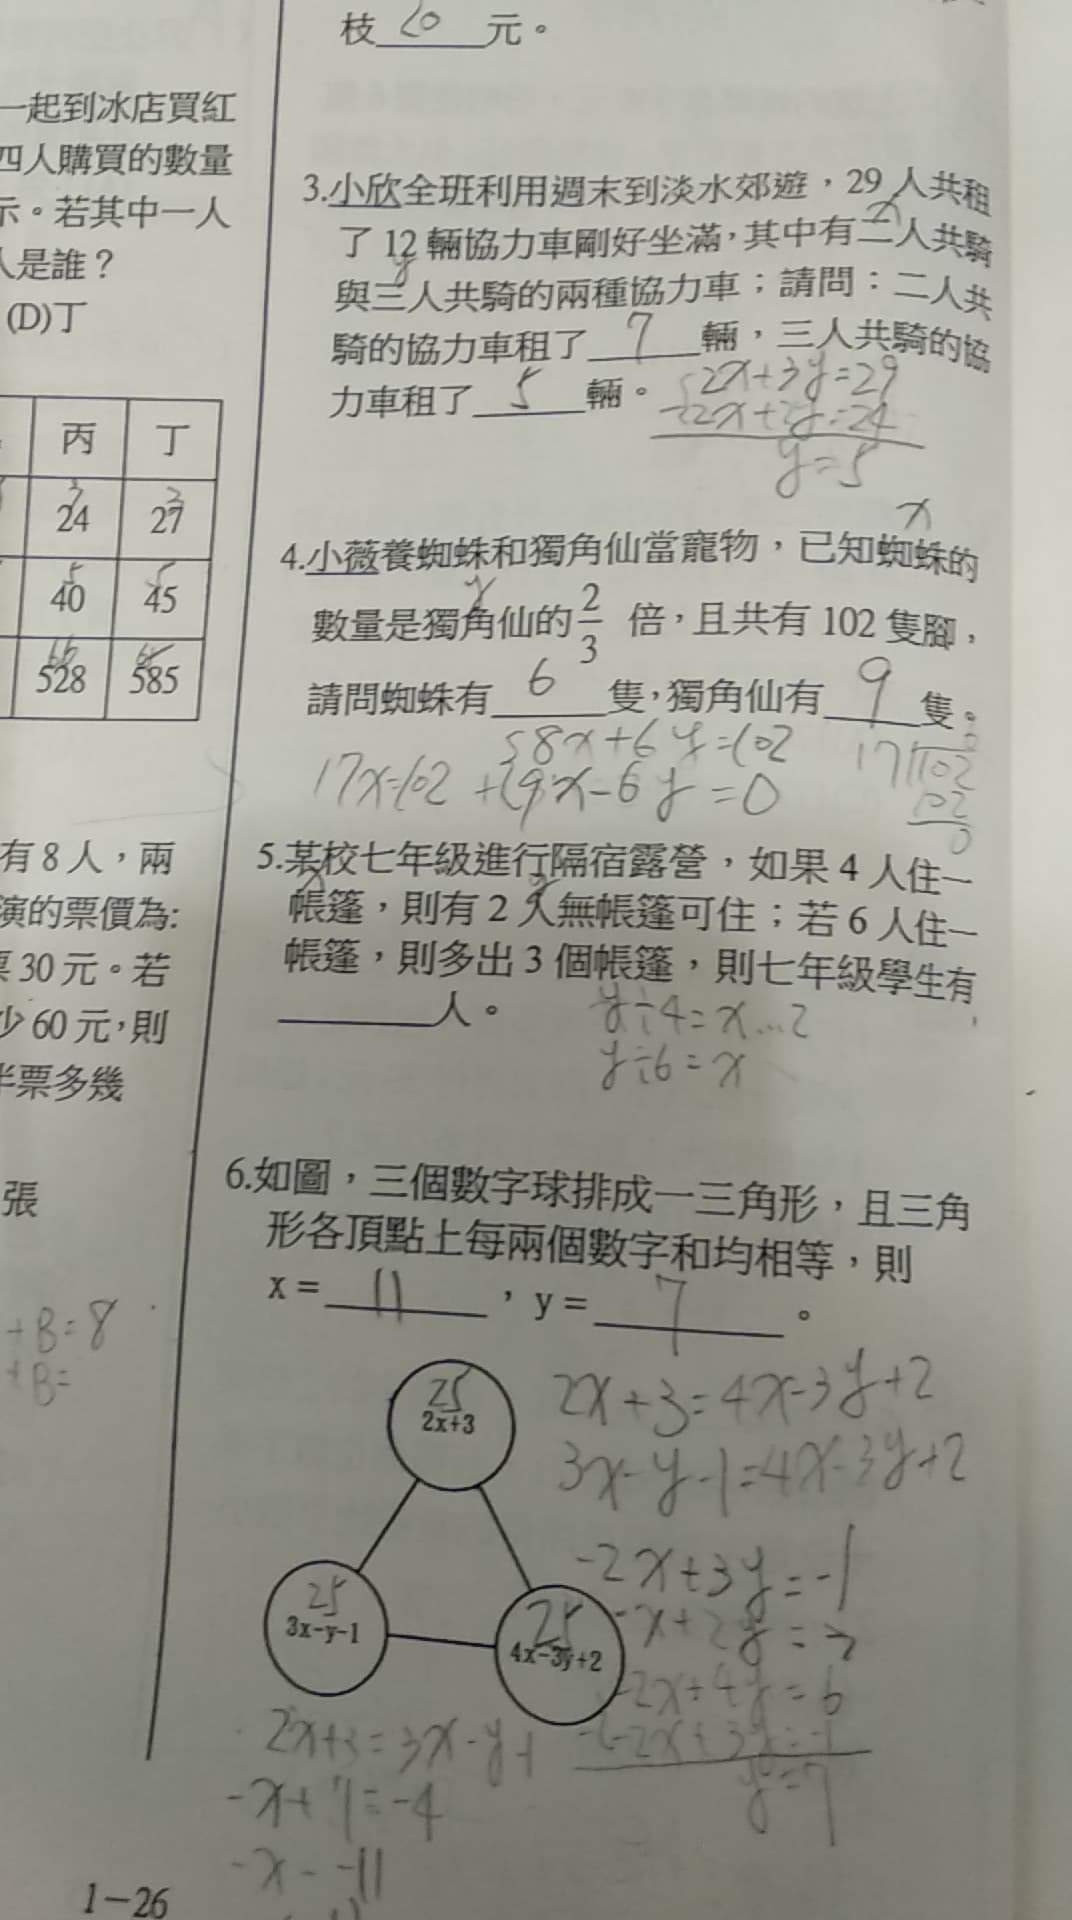 枝 20 元。
一起到冰店買紅
四人購買的數量
示。若其中一人
人是誰？
(D)丁
丙 丁
3 3
24 27
5 5
40 45
66 65
528 585
有 8 人，兩
演的票價為:
票 30 元。若
少 60 元，則
半票多幾
張
+B=8
+B=
3.小欣全班利用週末到淡水郊遊，29 人共租
x
了 12 輛協力車剛好坐滿，其中有二人共騎
y
與三人共騎的兩種協力車；請問：二人共
騎的協力車租了 7 輛，三人共騎的協
力車租了 5 輛。
2x+3y=29
-2x+2y=24
y=5
x
4.小薇養蜘蛛和獨角仙當寵物，已知蜘蛛的
y
數量是獨角仙的 2/3 倍，且共有 102 隻腳，
請問蜘蛛有 6 隻，獨角仙有 9 隻。
8x+6y=102
17x=102 +(9x-6y=0
17 102
102
0
5.某校七年級進行隔宿露營，如果 4 人住一
x y
帳篷，則有 2 人無帳篷可住；若 6 人住一
帳篷，則多出 3 個帳篷，則七年級學生有
人。
y÷4=x...2
y÷6=x
6.如圖，三個數字球排成一三角形，且三角
形各頂點上每兩個數字和均相等，則
x= 11 ，y= 7 。
25
2x+3
25
3x-y-1
25
4x-3y+2
2x+3=4x-3y+2
3x-y-1=4x-3y+2
-2x+3y=-1
-x+2y=3
-2x+4y=6
-(-2x+3y=-1
y=7
2x+3=3x-y-1
-x+7=-4
-x=-11
1-26